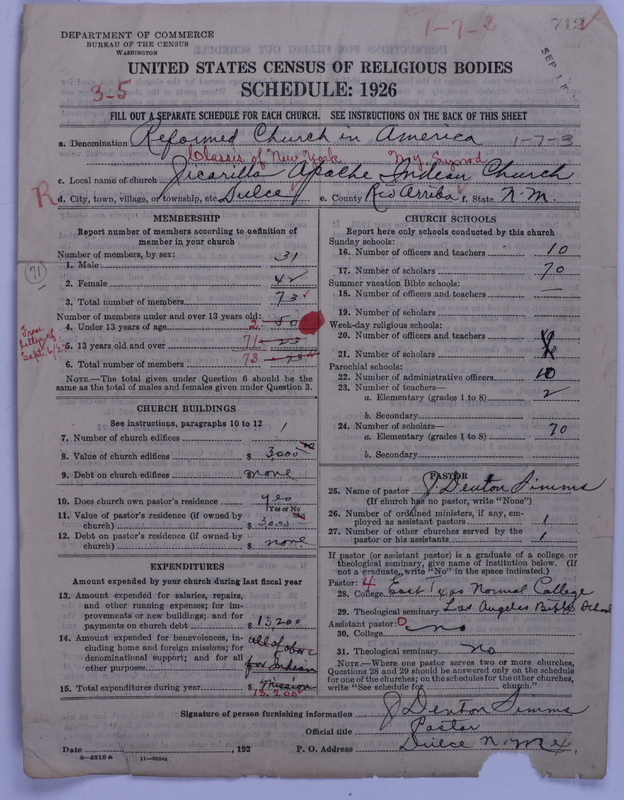 1-7-3
712
DEPARTMENT OF COMMERCE
BUREAU OF THE CENSUS
WASHINGTON
SEP
UNITED STATES CENSUS OF RELIGIOUS BODIES
3-5
SCHEDULE: 1926
FILL OUT A SEPARATE SCHEDULE FOR EACH CHURCH. SEE INSTRUCTIONS ON THE BACK OF THIS SHEET
a. Denomination Reformed Church in America 1-7-3
Classis of New York N.Y. Synod
c. Local name of church Jicarilla Apache Indian Church
R d. City, town, village, or township, etc. Dulce e. County Rio Arriba f. State N.M.
MEMBERSHIP
Report number of members according to definition of
member in your church
Number of members, by sex:
1. Male 31
2. Female 42
3. Total number of members 73
71
Number of members under and over 13 years old:
4. Under 13 years of age 2 50
5. 13 years old and over 71 23
6. Total number of members 73 73
From letter of Sept. 6/27
NOTE.—The total given under Question 6 should be the
same as the total of males and females given under Question 3.
CHURCH BUILDINGS
See instructions, paragraphs 10 to 12
7. Number of church edifices 1
8. Value of church edifices $ 3,000
9. Debt on church edifices $ none
10. Does church own pastor's residence yes
(Yes or No)
11. Value of pastor's residence (if owned by
church) $ 3,000
12. Debt on pastor's residence (if owned by
church) $ none
EXPENDITURES
Amount expended by your church during last fiscal year
13. Amount expended for salaries, repairs,
and other running expenses; for im-
provements or new buildings; and for
payments on church debt $ 13,200
14. Amount expended for benevolences, in-
cluding home and foreign missions; for
denominational support; and for all
other purposes
all of above
for Indian
mission
15. Total expenditures during year $ 13,200
CHURCH SCHOOLS
Report here only schools conducted by this church
Sunday schools:
16. Number of officers and teachers 10
17. Number of scholars 70
Summer vacation Bible schools:
18. Number of officers and teachers —
19. Number of scholars
Week-day religious schools:
20. Number of officers and teachers
21. Number of scholars
Parochial schools:
22. Number of administrative officers 10
23. Number of teachers—
a. Elementary (grades 1 to 8) 2
b. Secondary
24. Number of scholars—
a. Elementary (grades 1 to 8) 70
b. Secondary
PASTOR
25. Name of pastor J. Denton Simms
(If church has no pastor, write "None")
26. Number of ordained ministers, if any, em-
ployed as assistant pastors 1
27. Number of other churches served by the
pastor or his assistants 1
If pastor (or assistant pastor) is a graduate of a college or
theological seminary, give name of institution below. (If
not a graduate, write "No" in the space indicated.)
Pastor: 4
28. College East Texas Normal College
29. Theological seminary Los Angeles Bible School
Assistant pastor: 0
30. College no
31. Theological seminary no
NOTE.—Where one pastor serves two or more churches,
Questions 28 and 29 should be answered only on the schedule
for one of the churches; on the schedules for the other churches,
write "See schedule for church."
Signature of person furnishing information J. Denton Simms
Official title Pastor
Date , 192 P. O. Address Dulce N. Mex.
8—5516 a 11—9554